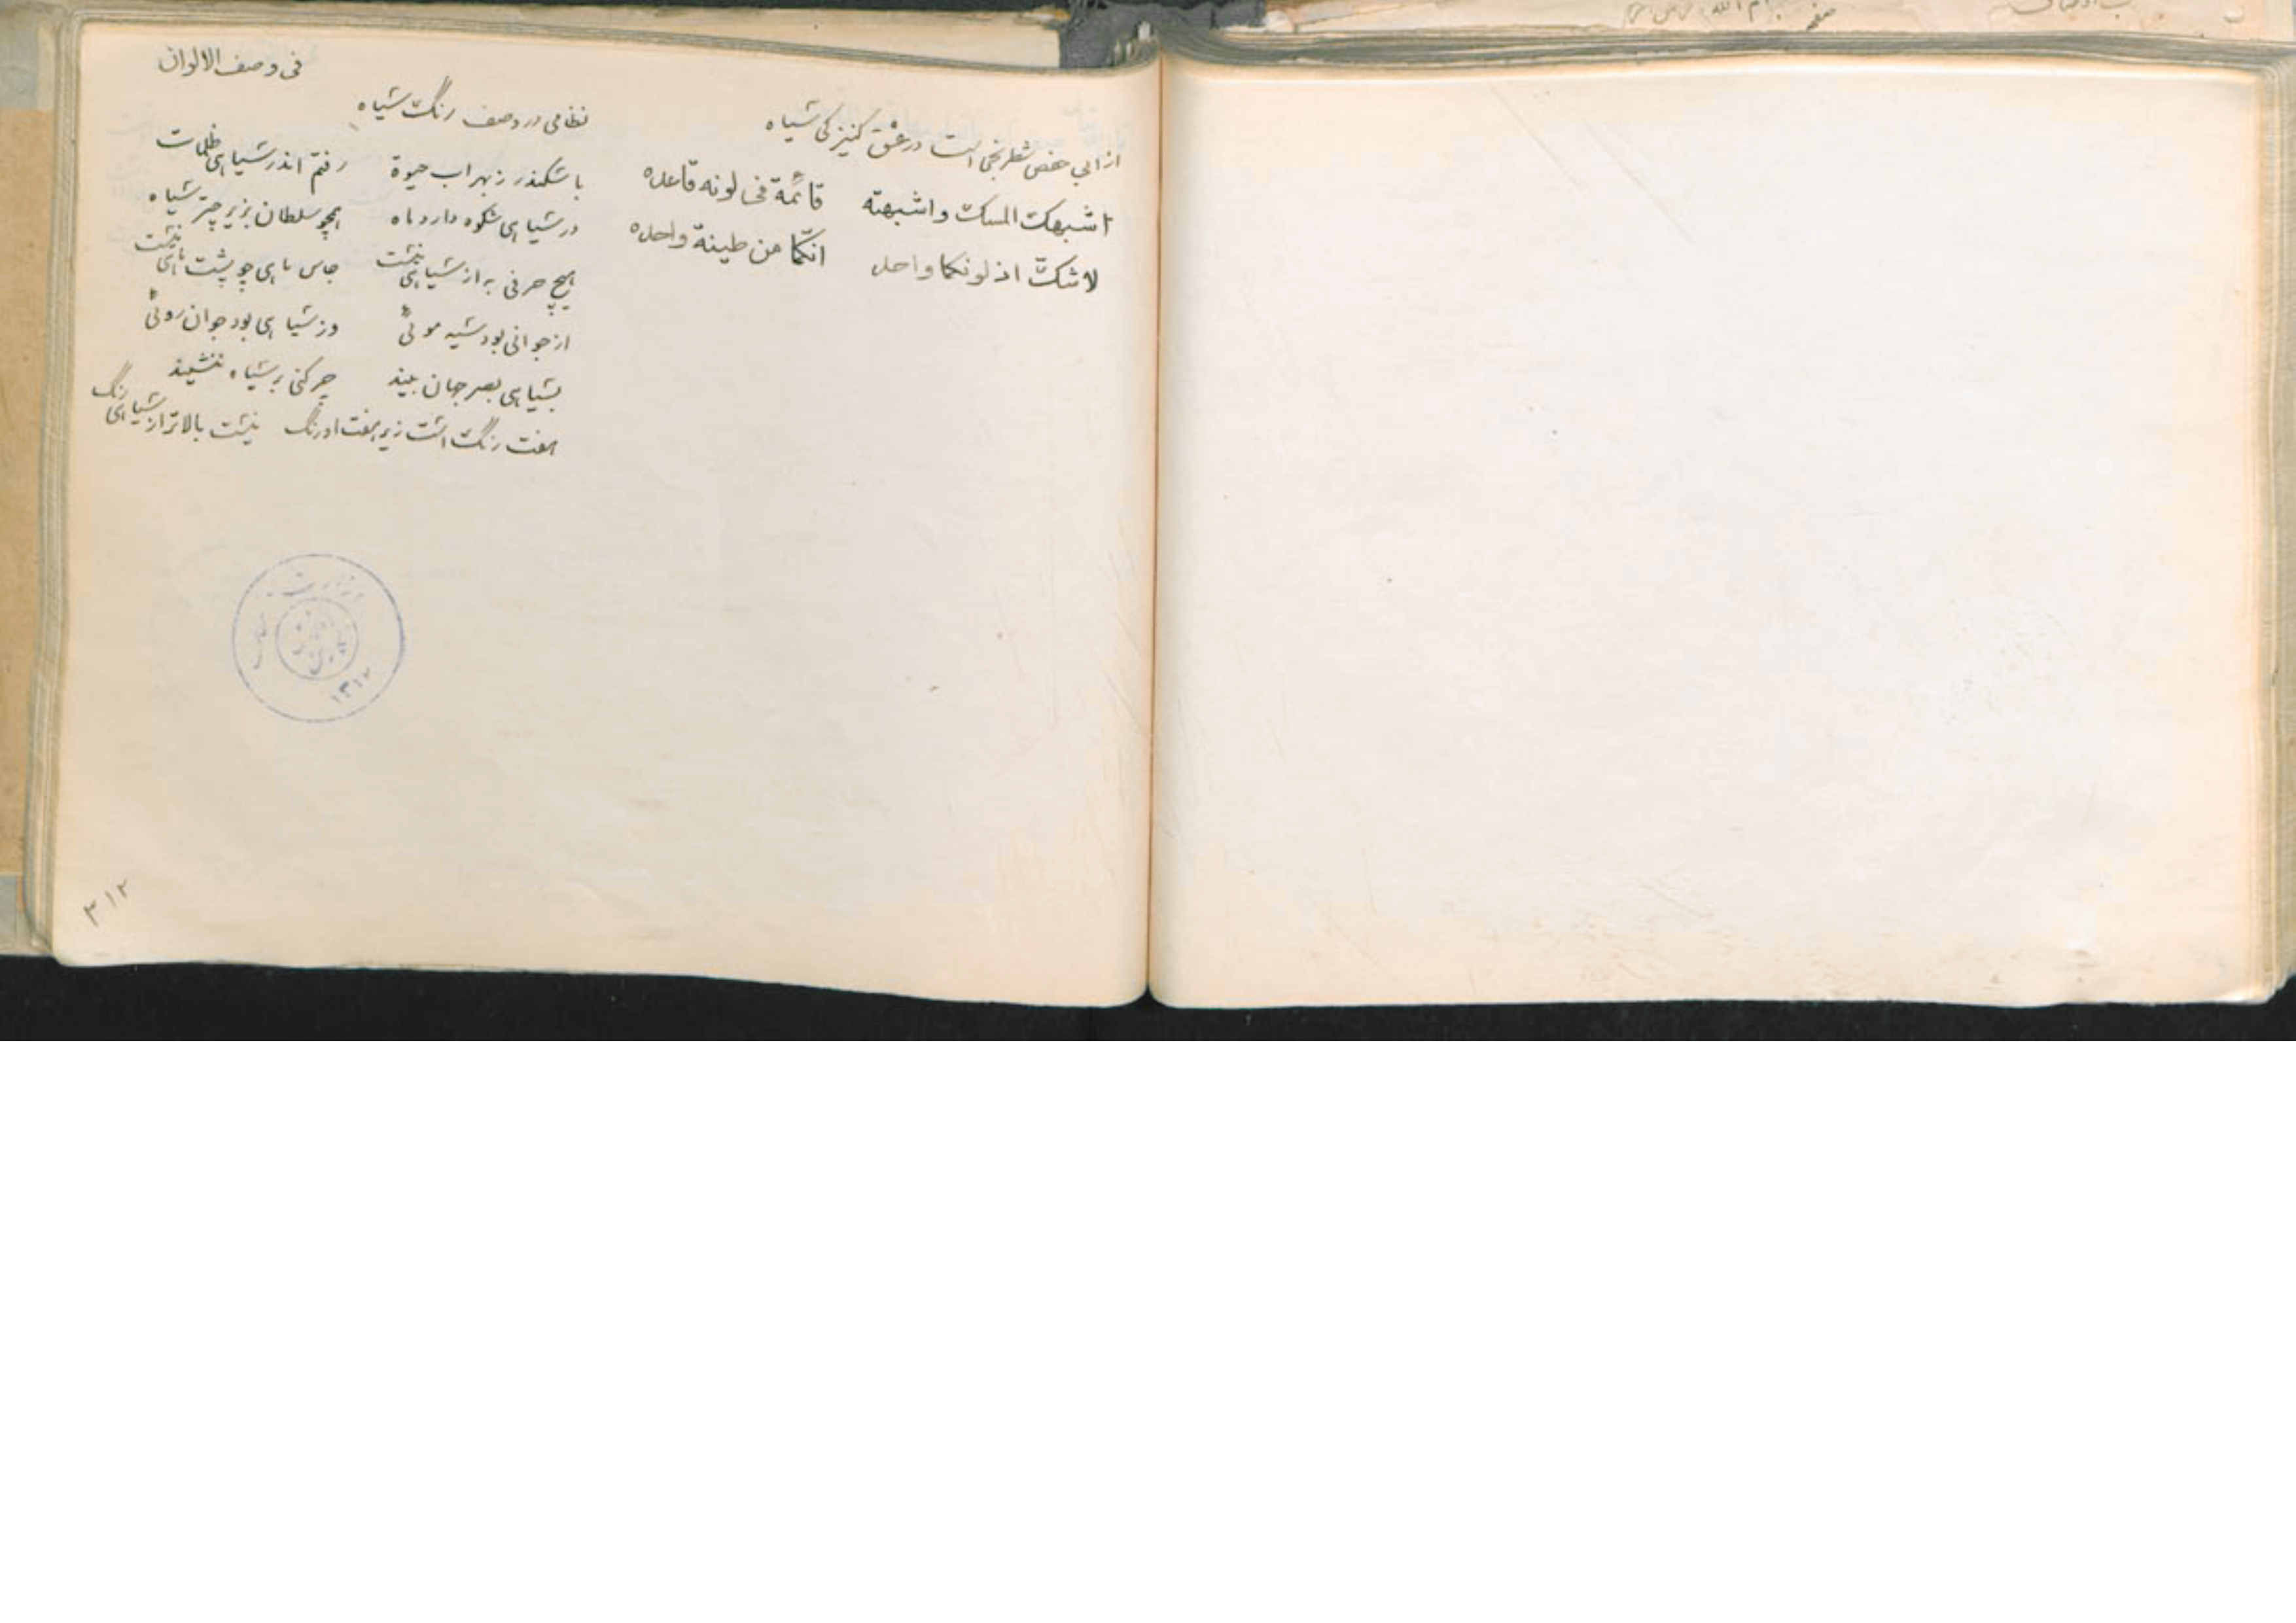 فی وصف الالوان
از ابی حفص شطرنجی است در عشق کنیزکی سیاه
اشبهک المسک و اشبهته قائمة فی لونه قاعده
لاشکّ اذ لونکما واحد انّکما من طینة واحده
نظامی در وصف رنگ سیاه
با سکندر ز بهر اب حیوة رفتم اندر سیاهی ظلمات
در سیاهی شکوه دارد ماه همچو سلطان بزیر چتر سیاه
هیچ حرفی به از سیاهی نیست داس ماهی چو پشت ماهی نیست
از جوانی بود سیه موئی وز سیاهی بود جوان روئی
بسیاهی بصر جهان بیند چرکنی بر سیاه ننشیند
هفت رنگ است زیر هفت اورنگ نیست بالاتر از سیاهی رنگ
وزارت
۱۳۱۲
۳۱۲